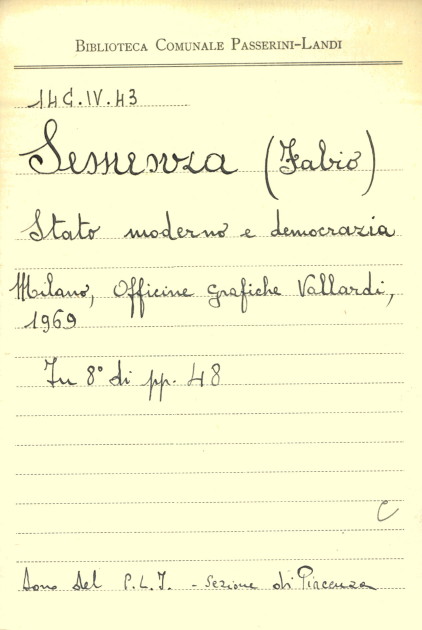 BIBLIOTECA COMUNALE PASSERINI-LANDI
14G.IV.43
Semenza (Fabio)
Stato moderno e democrazia
Milano, Officine grafiche Vallardi,
1969
In 8° di pp. 48
C
Dono del P.L.I. - Sezione di Piacenza